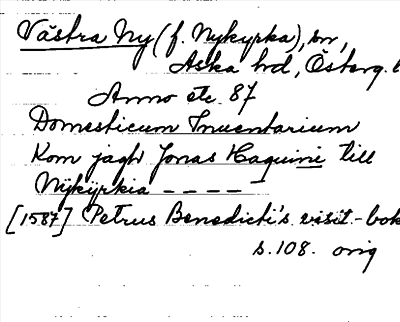 Västra Ny (f. Nykyrka), sn,
Aska hd, Österg. l
Anno etc. 87
Domesticum Inuentarium
Kom jagh Jonas Haquini till
Nÿkÿrkia - - - - -
[1587] Petrus Benedicti's visit.-bok
s. 108. orig